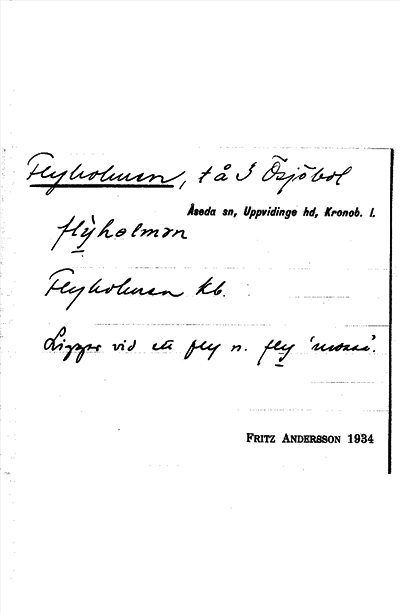 Flyholmen, t å 3 Ösjöbol
Åseda sn, Uppvidinge hd, Kronob. l.
flỳholmən
Flyholmen kb.
Ligger vid ett fly n. fly 'mosse'.
FRITZ ANDERSSON 1934